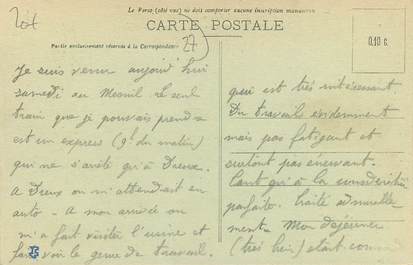 Le Verso (côté vue) ne doit comporter aucune inscription manuscrite
CARTE POSTALE
Partie exclusivement réservée à la Correspondance
27
0.10 c.
Je suis venu aujourd'hui
samedi au Mesnil. Le seul
train que je pouvais prendre
est un express (9h du matin)
qui ne s'arrête qu'à Dreux.
A Dreux on m'attendait en
auto - A mon arrivée on
m'a fait visiter l'usine et
fait voir le genre de travail.
qui est très intéressant
Du travail évidemment
mais pas fatigant et
surtout pas énervant.
Tant qu'à la considération
parfaite. Traité admirable
ment - Mon déjeuner
(très bien) était